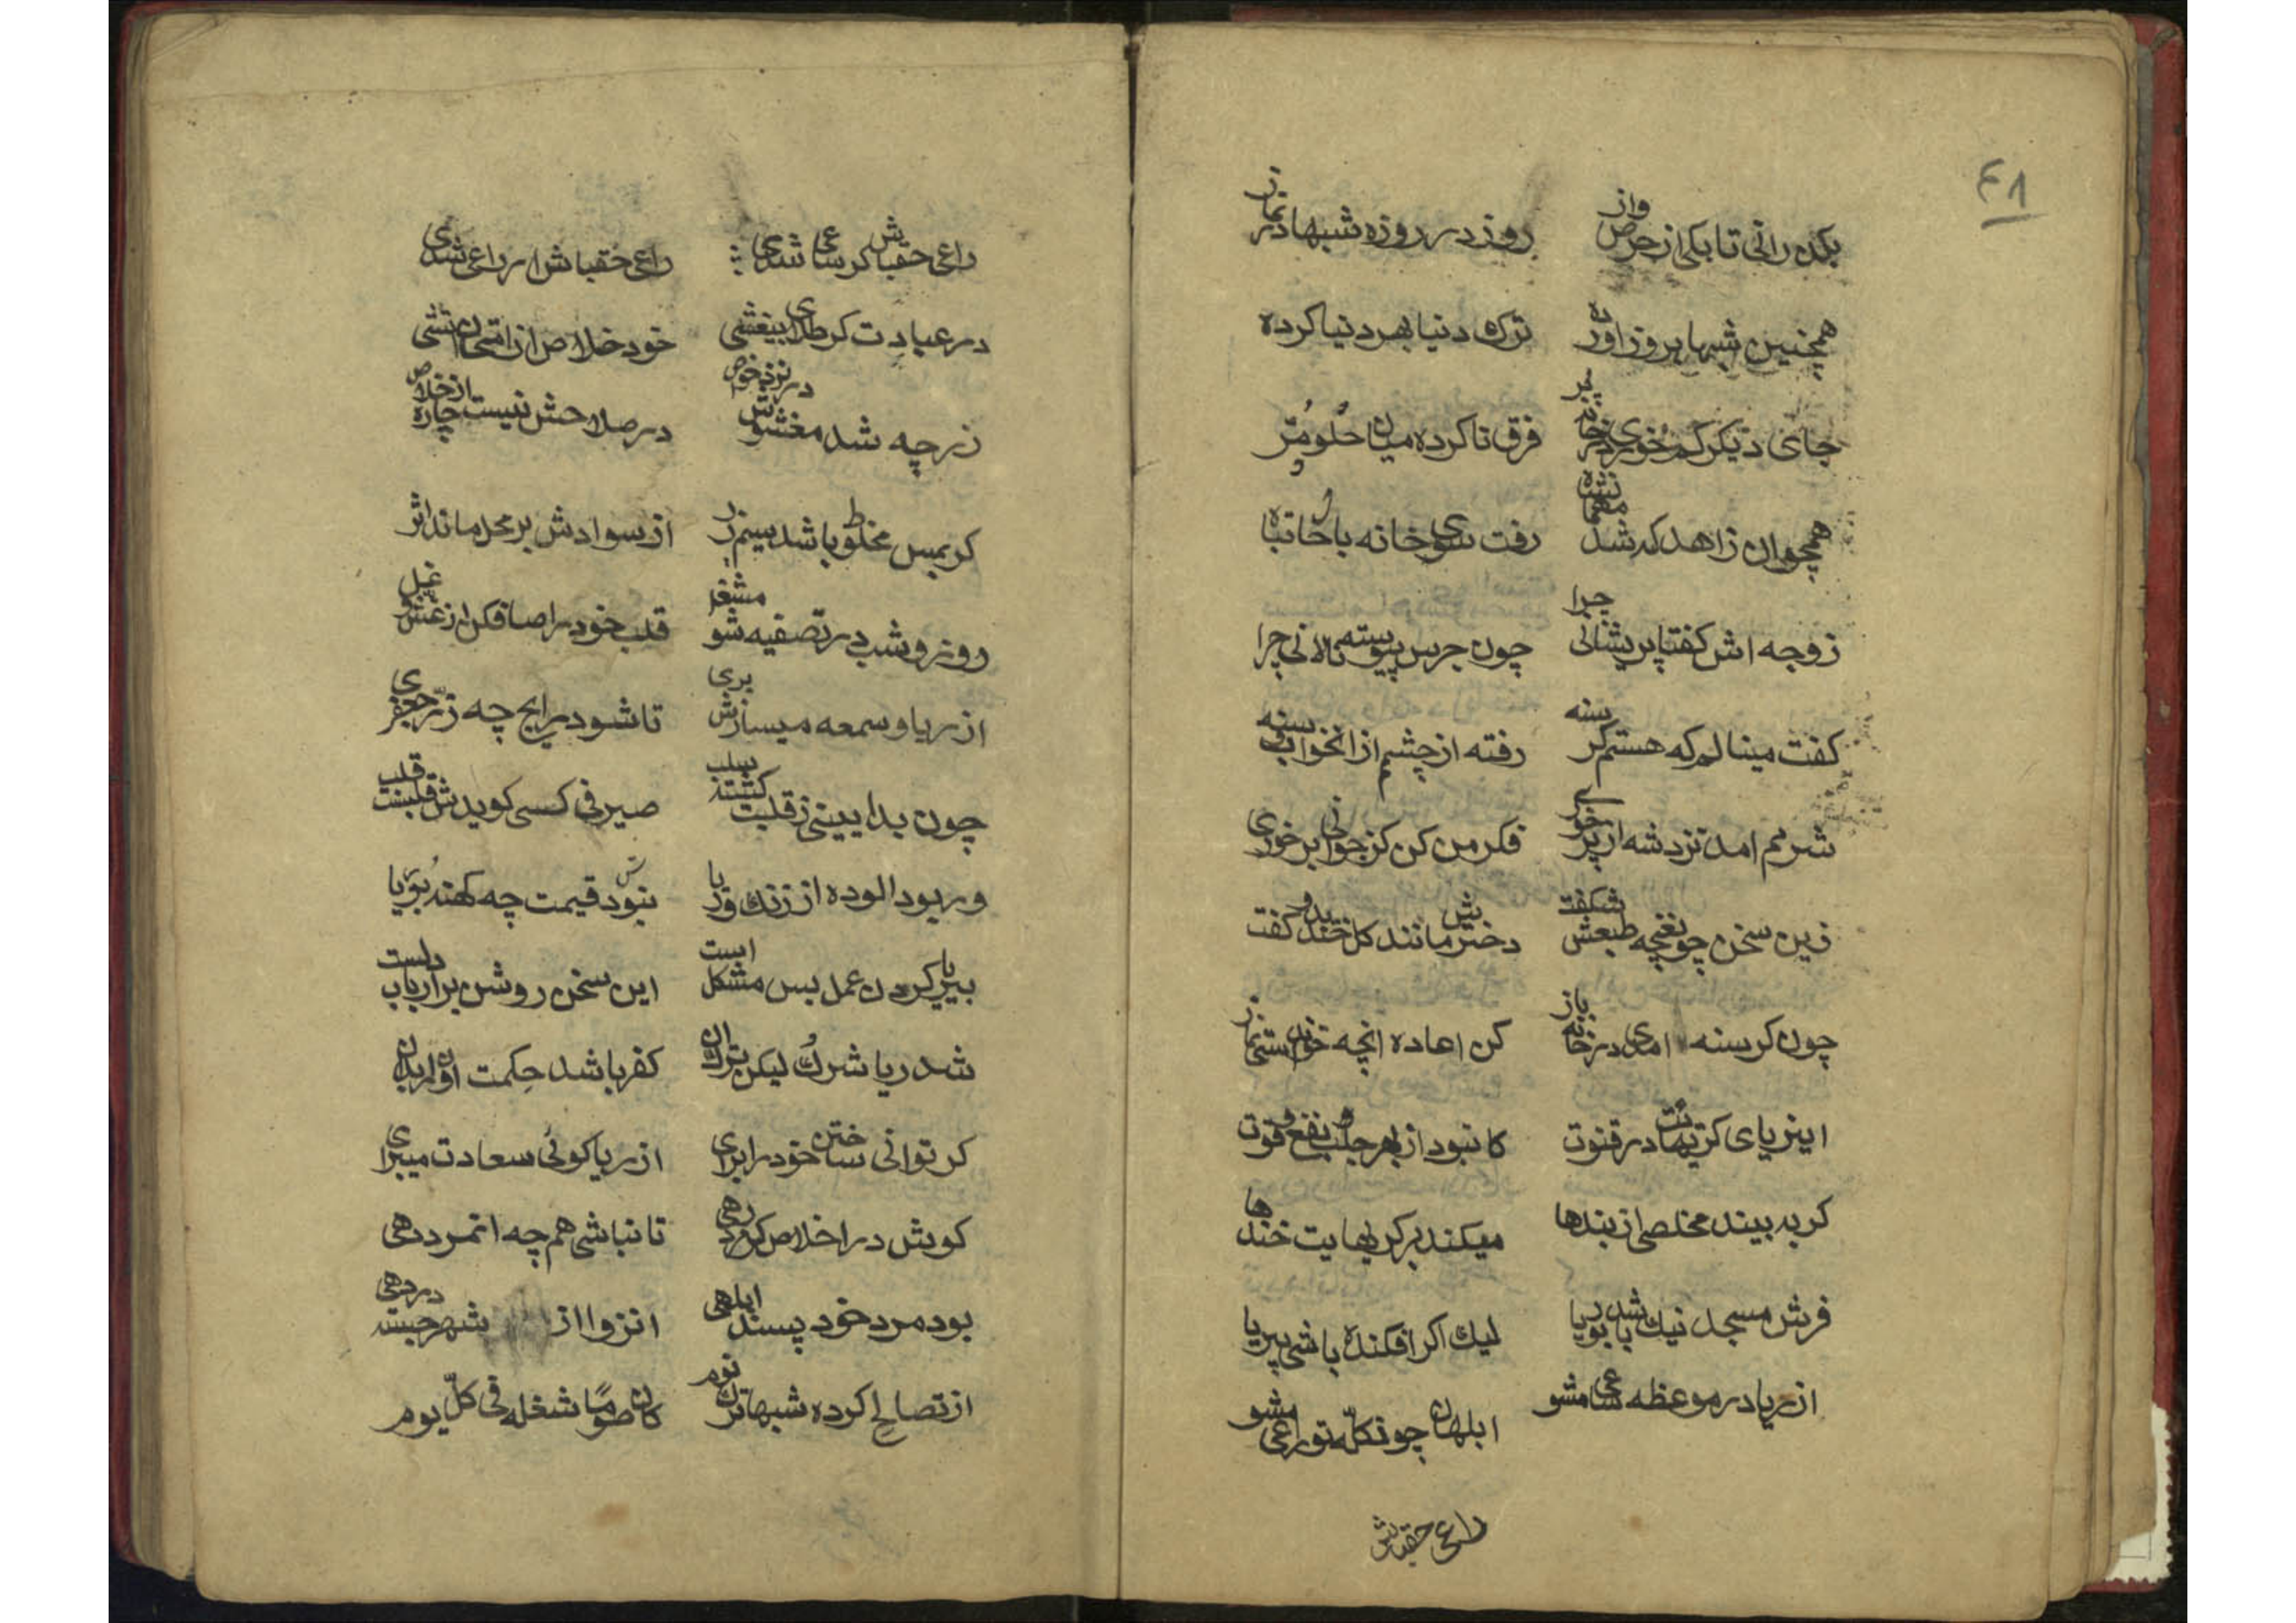 ٤٨
بکذرانی تا بکی از حرص و از روز در روزه شبها در نماز
همچنین شبها بروز آورده ترک دنیا بهر دنیا کرده
جای دیکر کم خوری در خانه پر فرق نا کرده میان حلو و مر
همچو ان زاهد که شد مهمان شه رفت سوی خانه با حال تباه
زوجه اش کفتا پریشانی چرا چون جرس پیوسته نالانی چرا
کفت مینالم که هستم کرسنه رفته از چشمم از ان خواب و سنه
شرمم امد نزد شه از پر خوری فکر من کن کز جوانی بر خوری
زین سخن چو غنچه طبعش شکفت دخترش مانند کل خندید و کفت
چون کرسنه امدی در خانه باز کن اعاده انچه خواندستی نماز
این ریای کر تهانت در قنوت کا نبود از بهر جلب نفع و قوت
کر به بیند مخلصی از بندها میکند بر کربهایت خندها
فرش مسجد نیک باشد بوریا لیک اکر افکنده باشی بیریا
از ریا در موعظه ساعی مشو ابلهان چون کله تو راعی مشو
راعی حقباش
راعی حقباش کر ساعی شدی راعی حقباش ار راعی شدی
در عبادت کر طلای بیغشی خود خلاص از امتحان اتشی
زر چه شد مغشوش در نزد خواص در صلاحش نیست چاره از خلاص
کر بمس مخلوط باشد سیم و زر از سوادش بر محل ماند اثر
روز و شب در تصفیه مشغول شو قلب خود را صاف کن از غش و غل
از ریا و سمعه میسازش بری تا شود رایج چه زر جعفری
چون بدا بینی ز قلبت کشته سلب صیرفی کسی کویدش قلبست قلب
ور بود الوده از زنک و ریا نبودش قیمت چه کهنه بوریا
بیریا کردن عمل بس مشکل است این سخن روشن بر ارباب دلست
شد ریا شرک لیکن ترک ان کفر باشد حکمت اول بدان
کر توانی ساختن خود را بری از ریا کوئی سعادت میبری
کوش در اخلاص کر مرد رهی تا نباشی همچه ان مرد دهی
بود مرد خود پسند ابلهی انزوا از شهر جسته در دهی
از تصالح کرده شبها ترک نوم کان صوما شغله فی کل یوم